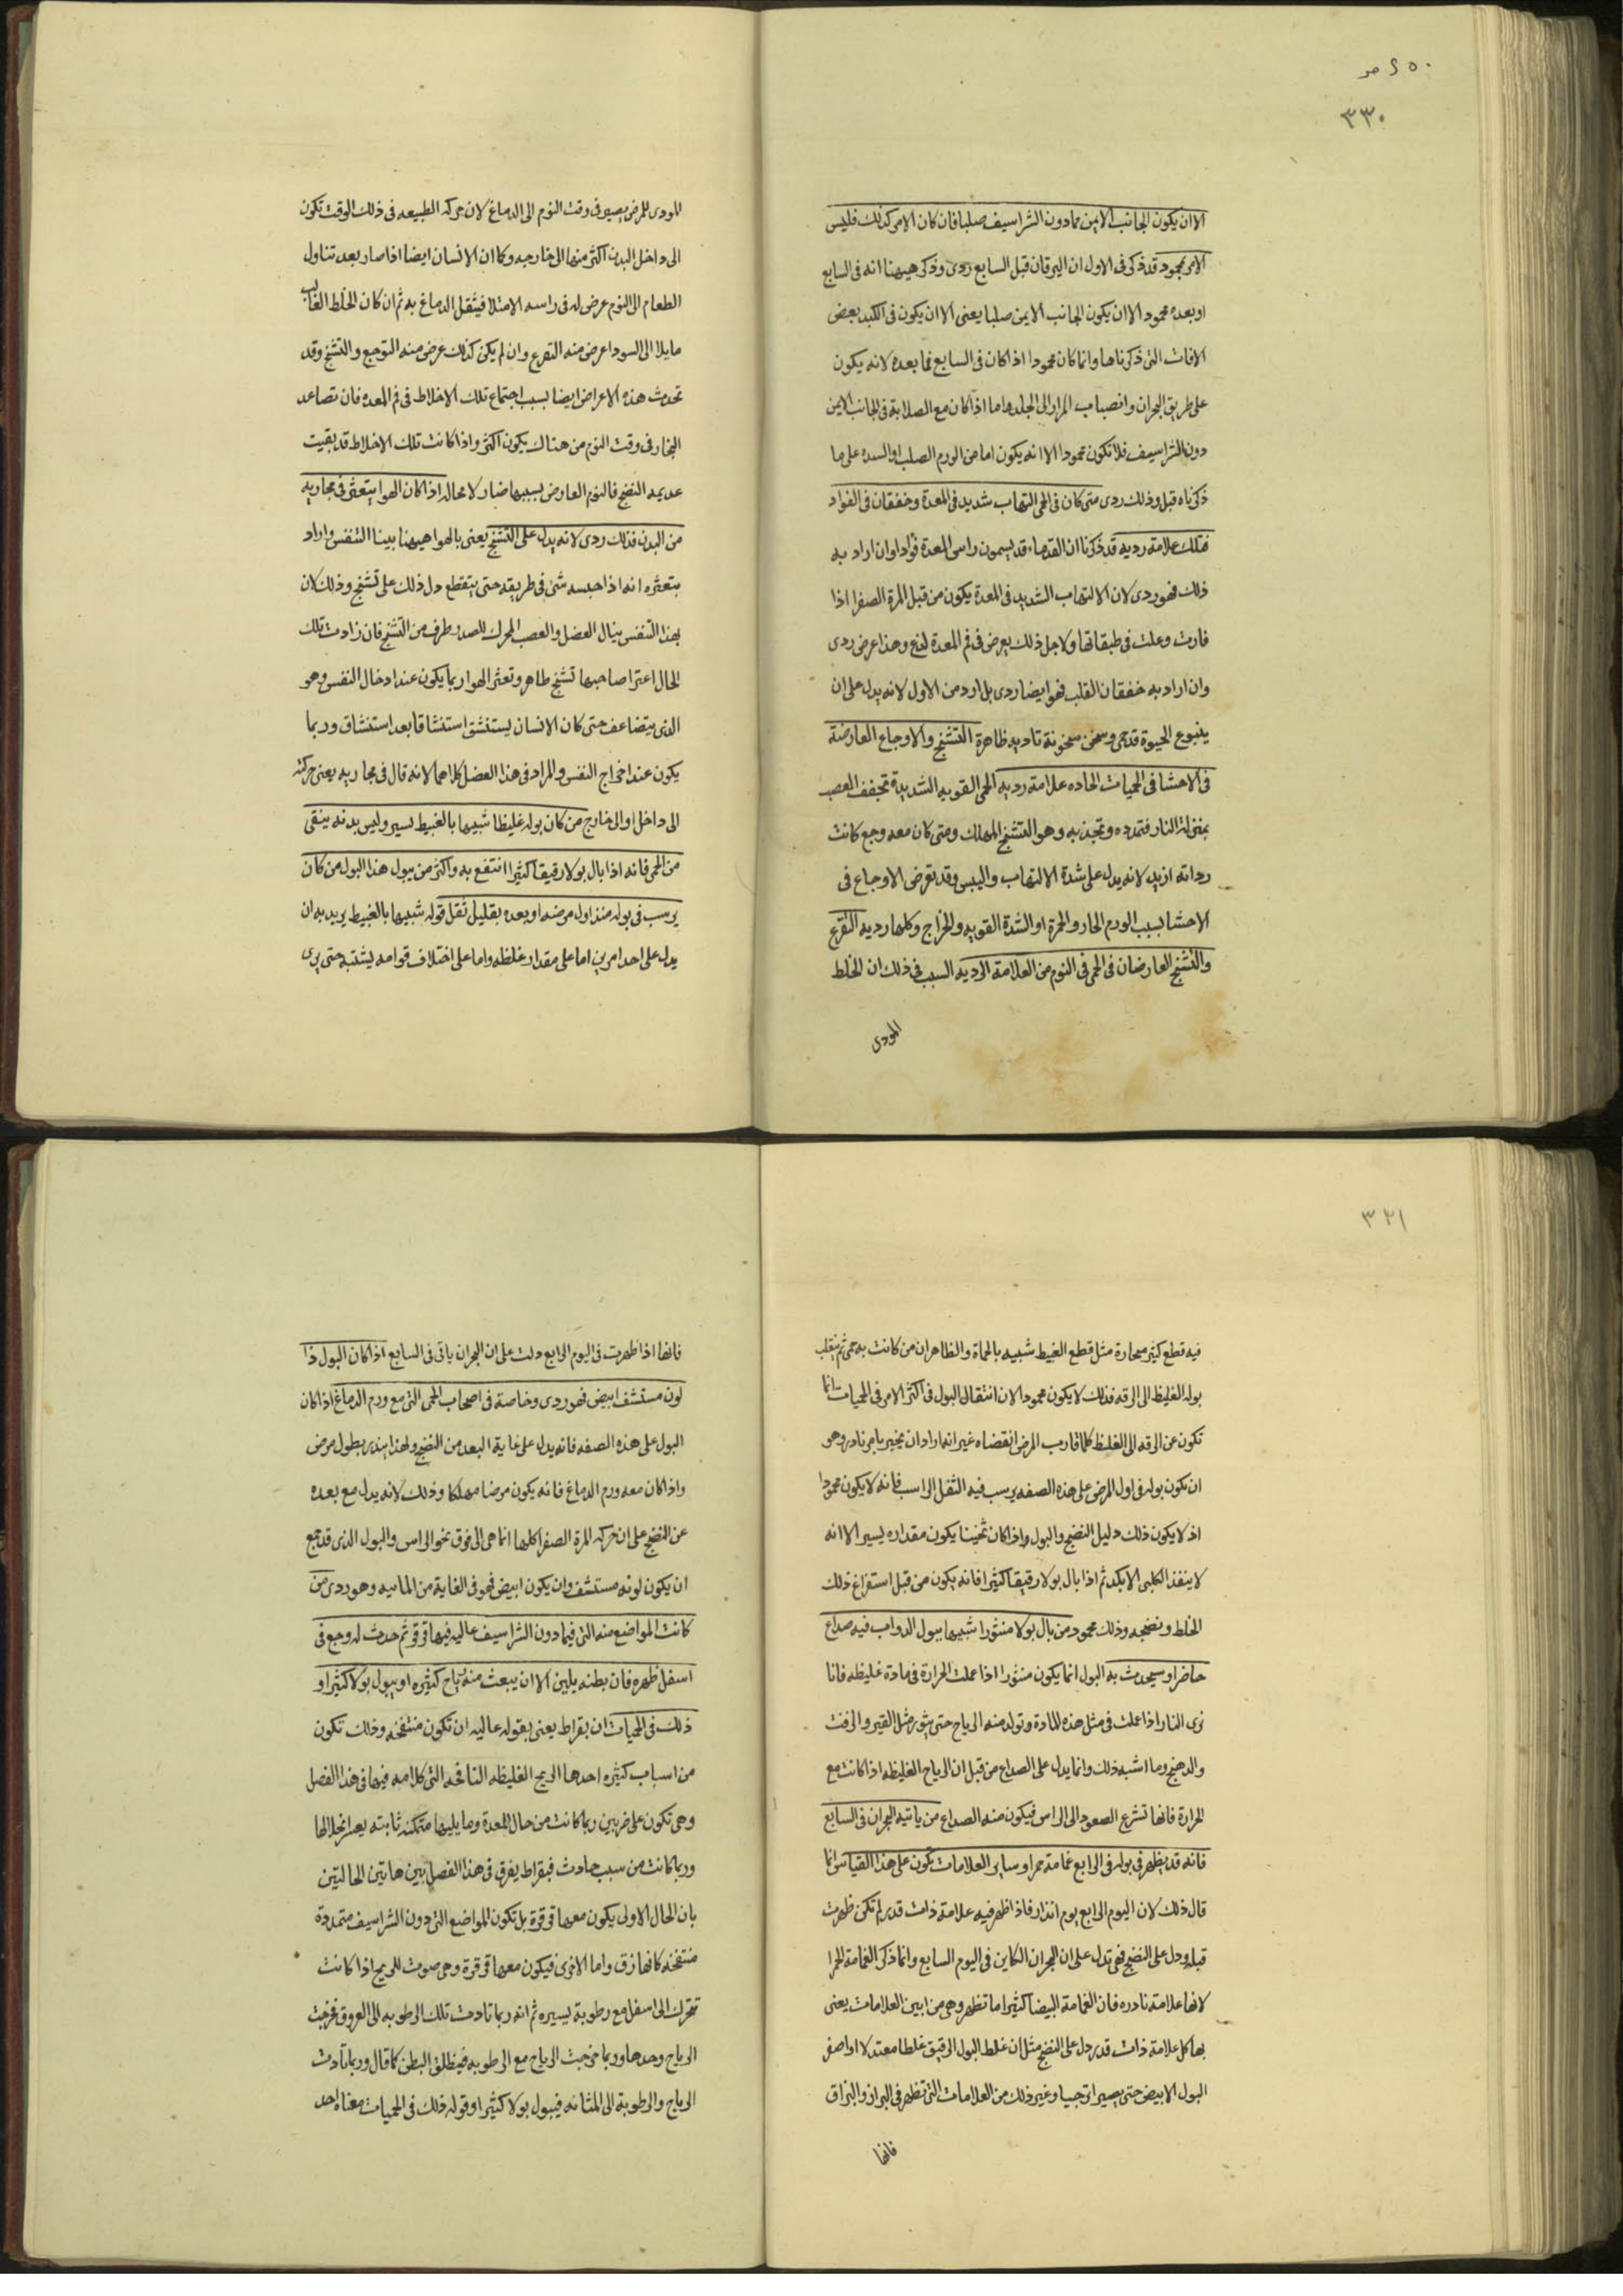 ٢٥٠ ص
٣٣٠
الا ان يكون الجانب الايمن مما دون الشراسيف صلبا فان كان الامر كذلك فليس
الامر بمحمود قد ذكر فى الاول ان اليرقان قبل السابع ردى وذكر هيهنا انه فى السابع
او بعده محمود الا ان يكون الجانب الايمن صلبا يعنى الا ان يكون فى الكبد بعض
الافات التى ذكرناها وانما كان محمودا اذا كان فى السابع فما بعده لانه يكون
على طريق البحران وانصباب المرار الى الجلد واما اذا كان مع الصلابة فى الجانب الايمن
دون الشراسيف فلا تكون محمودا الا انه يكون اما من الورم الصلب او السده على ما
ذكرناه قبل وذلك ردى متى كان فى الحمى التهاب شديد فى المعدة وخفقان فى الفواد
فتلك علامة رديه قد ذكرنا ان القدماء قد يسمون راس المعدة فوادا وان اراد به
ذلك فهو ردى لان الالتهاب الشديد فى المعدة يكون من قبل المرة الصفرا اذا
فارت وعلت فى طبقاتها ولاجل ذلك يعرض فى فم المعدة لذع وهذا عرض ردى
وان اراد به خفقان القلب فهو ايضا ردى بل اردا من الاول لانه يدل على ان
ينبوع الحيوة قد حمى وسخن سخونة تاديه ظاهرة التشنج والاوجاع العارضة
فى الاحشا فى الحميات الحاده علامة رديه الحمى القويه الشديدة تجفف العصب
بمنزلة النار فتمدده وتجذبه وهو التشنج المهلك ومتى كان معه وجع كانت
رداته ازيد لانه يدل على شدة الالتهاب واليبس وقد تعرض الاوجاع فى
الاحشا بسبب الورم الحار والحمرة او الشدة القويه والخراج وكلها رديه التفزع
والتشنج العارضان فى الحمى فى النوم من العلامة الرديه السبب فى ذلك ان الخلط
المودى
المودى للمرض يصير فى وقت النوم الى الدماغ لان حركة الطبيعه فى ذلك الوقت تكون
الى داخل البدن اكثر منها الى خارجه وكما ان الانسان ايضا اذا صار بعد تناول
الطعام الى النوم عرض له فى راسه الامتلا فيثقل الدماغ به ثم ان كان الخلط الغالب
مايلا الى السودا عرض منه التفزع وان لم يكن كذلك عرض منه التوجع والتشنج وقد
تحدث هذه الاعراض ايضا بسبب اجتماع تلك الاخلاط فى فم المعده فان تصاعد
البخار فى وقت النوم من هناك يكون اكثر واذا كانت تلك الاخلاط قد بقيت
عديمه النضج فالنوم العارض بسببها ضار لا محاله اذا كان الهوا يتعثر فى مجاريه
من البدن فذلك ردى لانه يدل على التشنج يعنى بالهوا هيهنا بينا التنفس واراد
بتعثره انه اذا حبسه شى فى طريقه حتى يتقطع دل ذلك على تشنج وذلك لان
بهذا التنفس ينال العضل والعصب المحرك للصدر طرف من التشنج فان زادت تلك
الحال اعترا صاحبها تشنج ظاهر وتعثر الهوا ربما يكون عند ادخال النفس وهو
الذى يتضاعف حتى كان الانسان يستنشق استنشاقا بعد استنشاق وربما
يكون عند اخراج النفس والمراد فى هذا الفصل كلاهما لانه قال فى مجاريه يعنى حركته
الى داخل او الى خارج من كان بوله غليظا شبيها بالغبيط يسير وليس بدنه ينقى
من الحمى فانه اذا بال بولا رقيقا كثيرا انتفع به واكثر من يبول هذا البول من كان
يرسب فى بوله منذ اول مرضه او بعده بقليل ثقل قوله شبيها بالغبيط يريد به ان
يدل على احد امرين اما على مقدار غلظه واما على اختلاف قوامه يشتبه حتى يرى
٣٣١
فيه قطع كثير مبحارة مثل قطع الغبيط شبيه بالحماة والظاهر ان من كانت به حمى ثم ينقلب
بوله الغليظ الى الرقه فذلك لا يكون محمودا لان انتقال البول فى اكثر الامر فى الحميات انما
تكون عن الرقه الى الغلظ كلما قارب المرض انقضاه غير انه اراد ان يخبر بامر نادر وهو
ان تكون بوله فى اول المرض على هذه الصفه يرسب فيه الثقل الراسب فانه لا يكون محمودا
اذ لا يكون ذلك دليل النضج والبول واذا كان ثخينا يكون مقداره يسير الا انه
لا ينفذ الكلى الا بكد ثم اذا بال بولا رقيقا كثيرا فانه يكون من قبل استفراغ ذلك
الخلط ونضجه وذلك محمود من بال بولا منثورا شبيها ببول الدواب فيه صداع
حاضر او سيحدث به البول انما يكون منثورا اذا عملت الحرارة فى مادة غليظه فانا
نرى النار اذا عملت فى مثل هذه المادة وتولد منه الرياح حتى يثور مثل القير والزفت
والدهنج وما اشبه ذلك وانما يدل على الصداع من قبل ان الرياح الغليظه اذا كانت مع
الحرارة فانها تسرع الصعود الى الراس فيكون منه الصداع من ياتيه البحران فى السابع
فانه قد يظهر فى بوله فى الرابع غمامة حمرا وساير العلامات تكون على هذا القياس انما
قال ذلك لان اليوم الرابع يوم انذار فاذا ظهر فيه علامة ذات قدر لم تكن ظهرت
قبله ودل على النضج فهى تدل على ان البحران الكاين فى اليوم السابع وانما ذكر الغمامة الحمرا
لانها علامة نادره فان الغمامة البيضا كثيرا ما تظهر وهى من ابين العلامات يعنى
بها كل علامة ذات قدر دل على النضج مثل ان غلظ البول الرقيق غلظا معتدلا او اصفر
البول الابيض حتى يصير اترجيا وغير ذلك من العلامات التى تظهر فى البراز والبزاق
فانها
فانها اذا ظهرت فى اليوم الرابع دلت على ان البحران ياتى فى السابع اذا كان البول ذا
لون مستشف ابيض فهو ردى وخاصة فى اصحاب الحمى التى مع ورم الدماغ اذا كان
البول على هذه الصفه فانه يدل على غاية البعد من النضج ولهذا ينذر بطول مرض
واذا كان معه ورم الدماغ فانه يكون مرضا مهلكا وذلك لانه يدل مع بعده
عن النضج على ان حركه المرة الصفرا كلها انما هى الى فوق نحو الراس والبول الذى قد جمع
ان يكون لونه مستشف وان يكون ابيض فهو فى الغاية من المائيه وهو ردى من
كانت المواضع منه التى فيما دون الشراسيف عاليه فيها قرقر ثم حدث له وجع فى
اسفل ظهره فان بطنه يلين الا ان يبعث منه رياح كثيره او يبول بولا كثيرا و
ذلك فى الحميات ان بقراط يعنى بقوله عاليه ان تكون منتفخه وذلك تكون
من اسباب كثيره احدها الريح الغليظه النافخه التى كلامه فيها فى هذا الفصل
وهى تكون على ضربين ربما كانت من حال المعدة وما يليها متمكنه ثابته يعسر انحلالها
وربما كانت من سبب حادث فبقراط يفرق فى هذا الفصل بين هاتين الحالتين
بان الحال الاولى يكون معها قرقرة بل تكون المواضع التى دون الشراسيف متمددة
منتفخه كانها زق واما الاخرى فيكون معها قرقرة وهى صوت للريح اذا كانت
تتحرك الى اسفل مع رطوبة يسيره ثم انه ربما تادت تلك الرطوبه الى العروق فخرجت
الرياح وحدها وربما خرجت الرياح مع الرطوبه فينطلق البطن كما قال وربما تادت
الرياح والرطوبة الى المثانه فيبول بولا كثيرا وقوله ذلك فى الحميات معناه احد